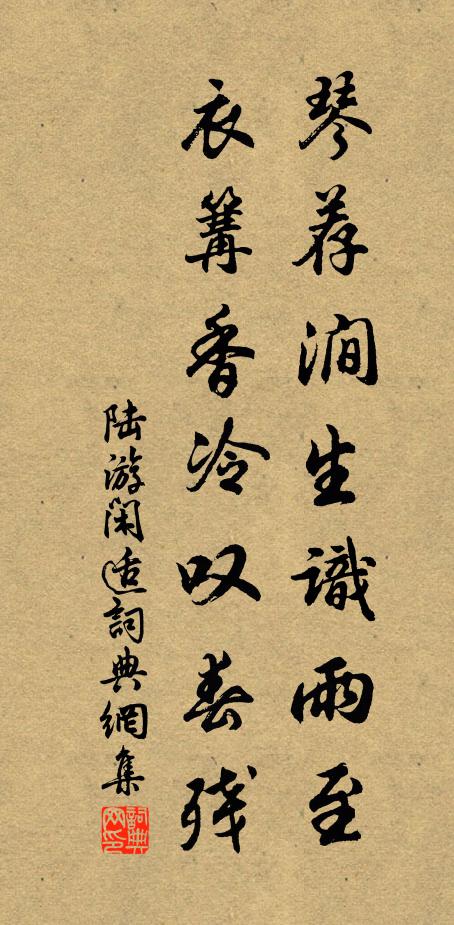 琴荐润生識雨至
衣篝香冷叹春残
陆游闲适詞典網集
詞典网印